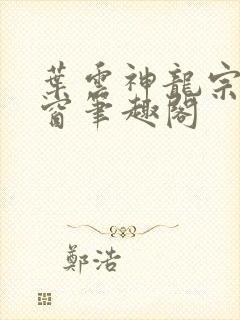 葉雲神龍宗
窗筆趣閣
鄭浩